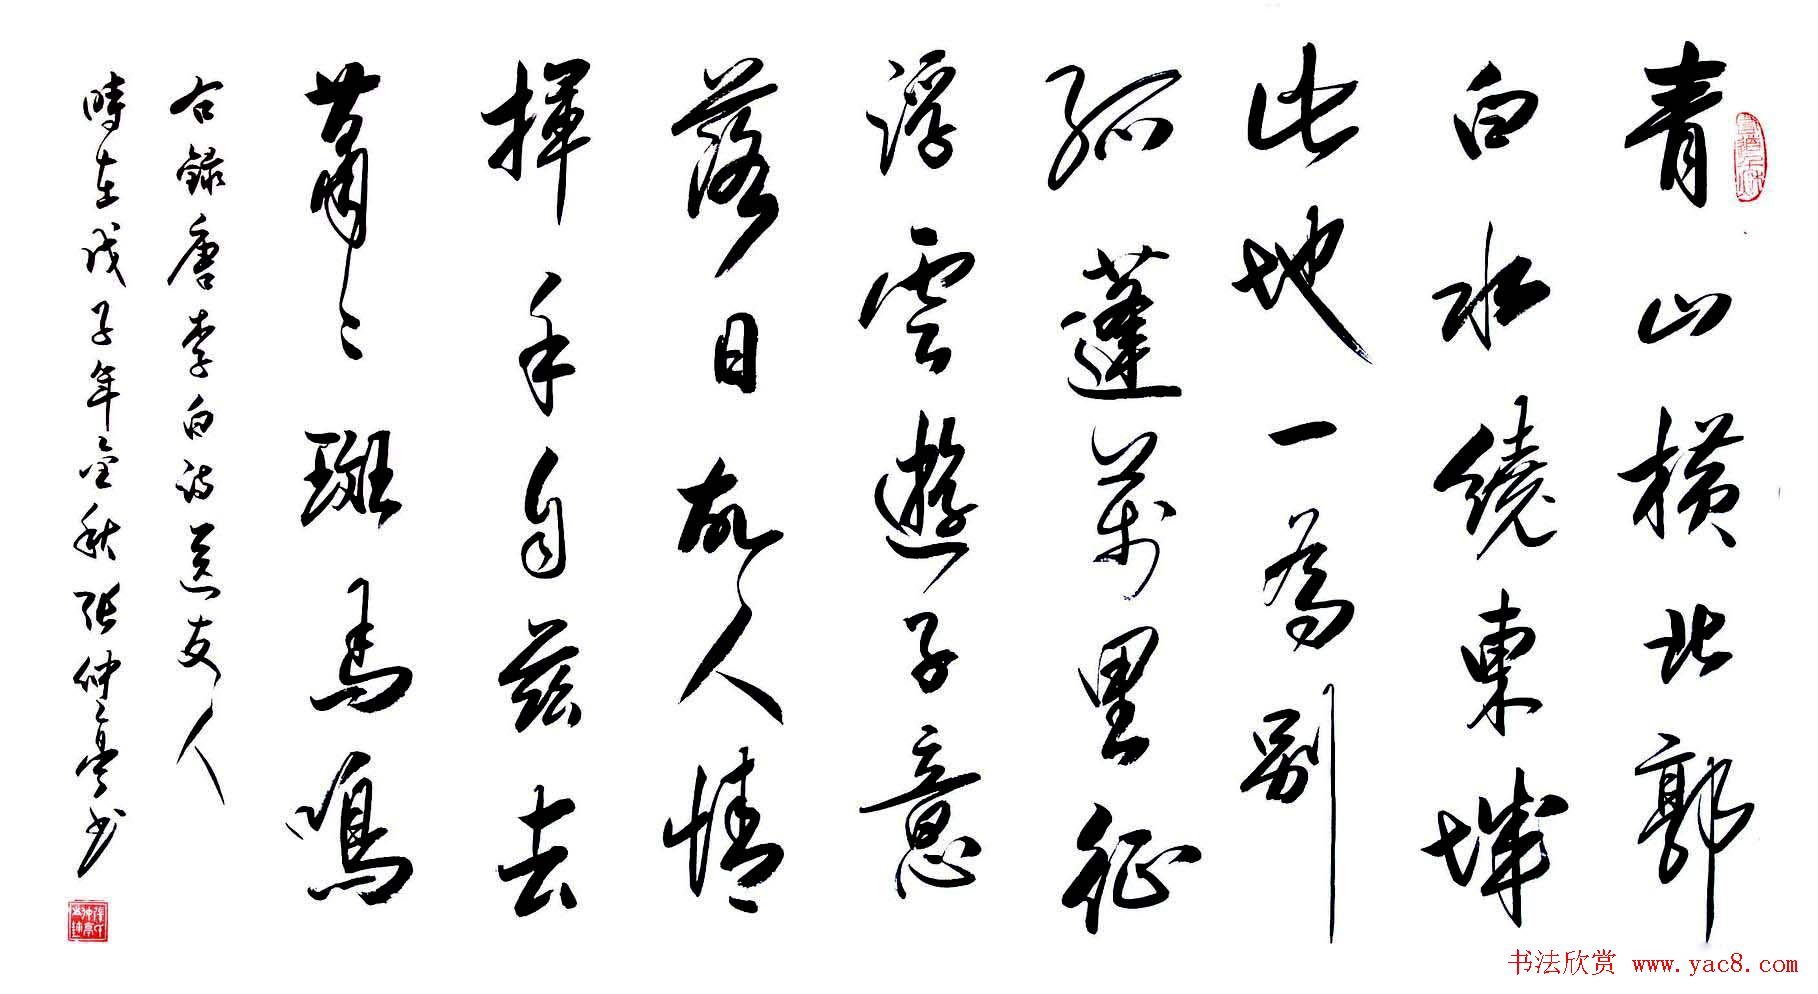 青山橫北郭
白水繞東城
此地一為別
孤蓬萬里征
浮雲遊子意
落日故人情
揮手自茲去
蕭〻班馬鳴
右錄唐李白詩送友人
時在戊子年金秋張仲亭書
书法欣赏 www.yac8.com